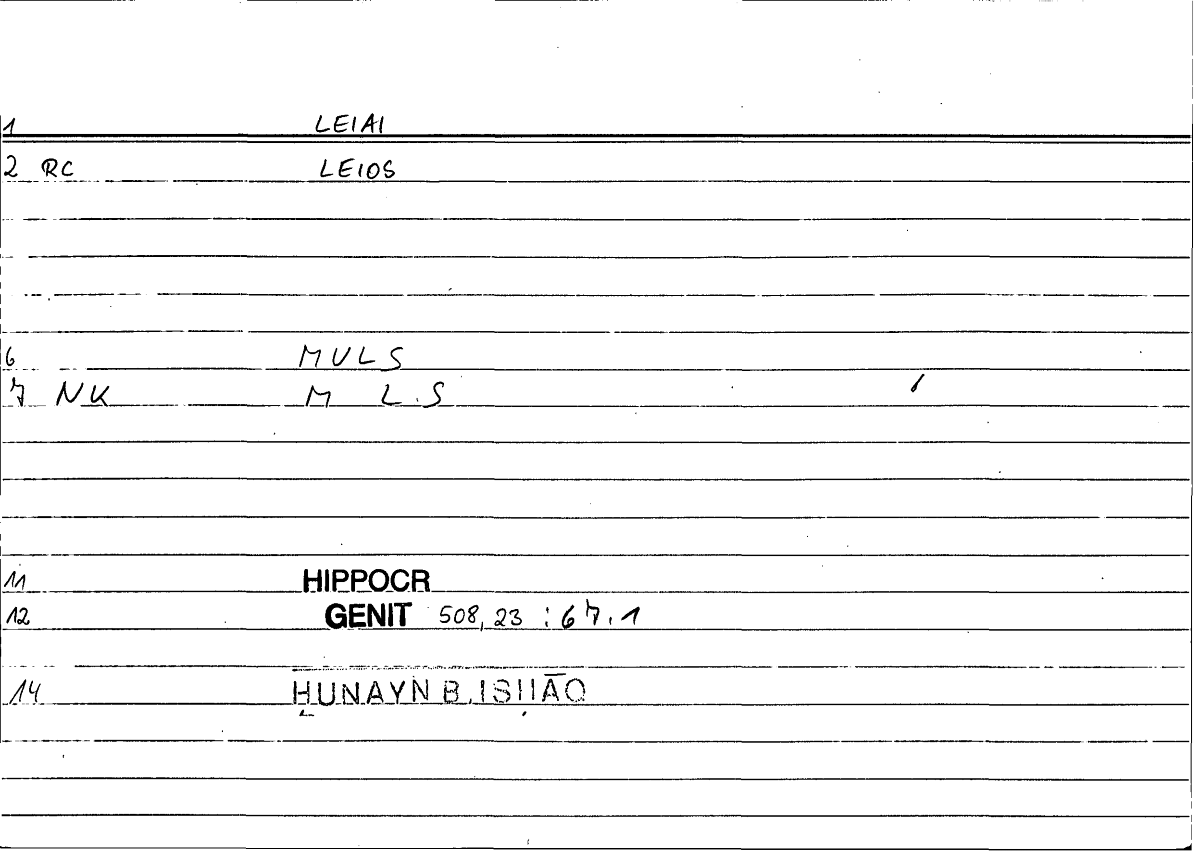 1 LEIAI
2 RC LEIOS
6 MULS
7 NK M L.S
11 HIPPOCR
12 GENIT 508,23 : 67.1
14 ḤUNAYN B. ISḤĀQ